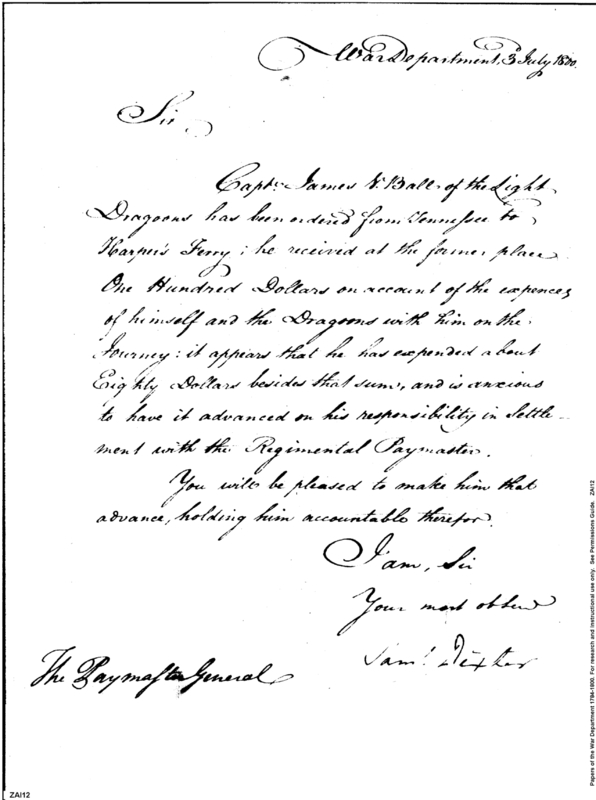 War Department, 3 July 1800.
Sir
Capt. James V. Ball of the Light
Dragoons has been ordered from Tennessee to
Harper's Ferry; he received at the former place
One Hundred Dollars on account of the expences
of himself and the Dragoons with him on the
Journey: it appears that he has expended about
Eighty Dollars besides that sum, and is anxious
to have it advanced on his responsibility in settle-
ment with the Regimental Paymaster.
You will be pleased to make him that
advance, holding him accountable therefor.
I am, Sir
Your most obServ
Sam.l Dexter
The Paymaster General
ZAI12
Papers of the War Department 1784-1800. For research and instructional use only. See Permissions Guide. ZAI12